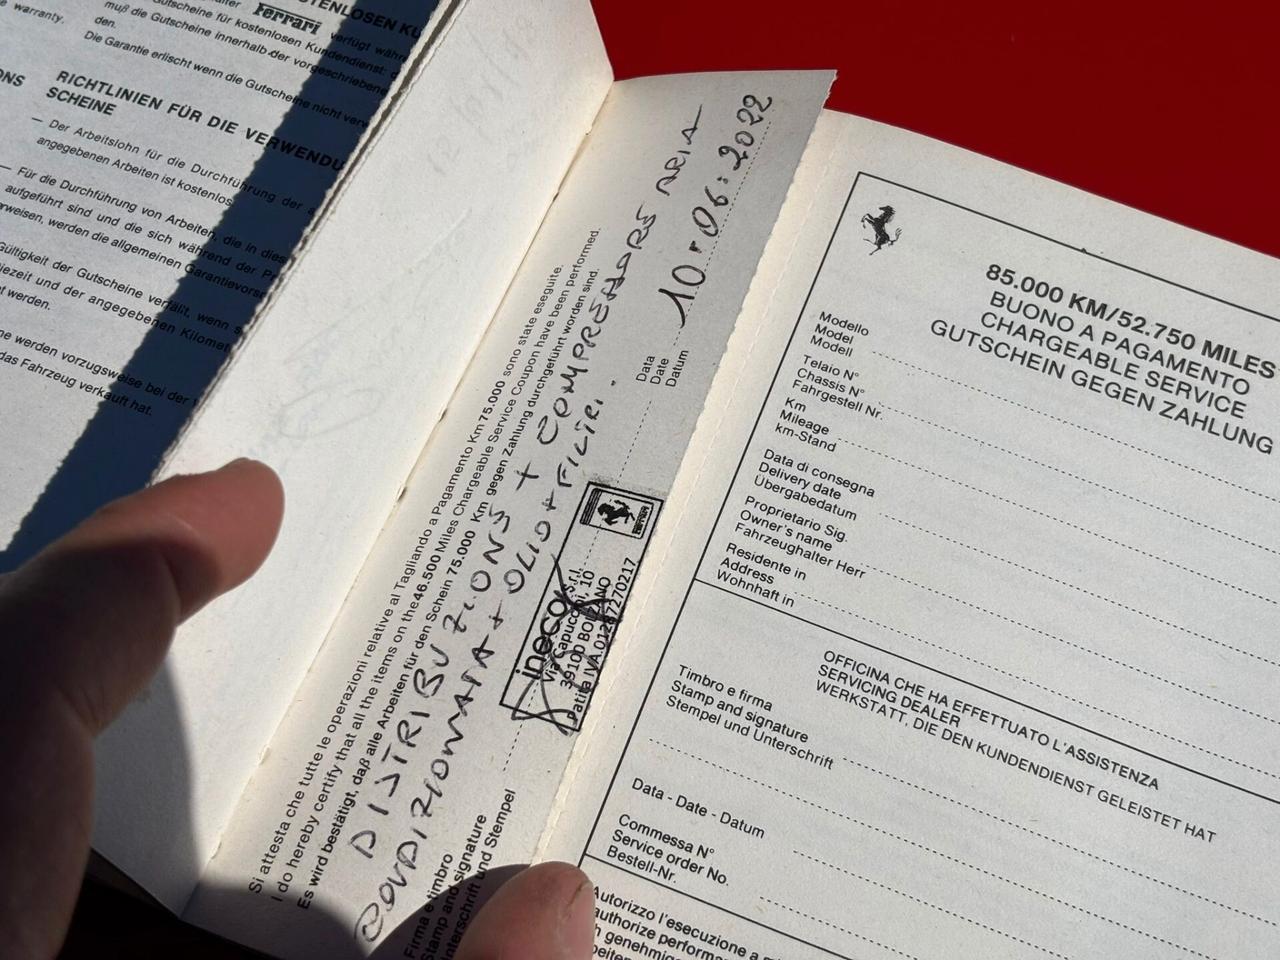 e warranty.
Ferrari
OSTENLOSEN KU
Gutscheine für kostenlosen Kundendienst:
verfügt währ
muß die Gutscheine innerhalb der vorgeschriebene
den.
Die Garantie erlischt wenn die Gutscheine nicht verw
ONS
RICHTLINIEN FÜR DIE VERWENDU
SCHEINE
— Der Arbeitslohn für die Durchführung der
angegebenen Arbeiten ist kostenlos
— Für die Durchführung von Arbeiten, die in dies
aufgeführt sind und die sich während der Pr
rweisen, werden die allgemeinen Garantievorsc
Gültigkeit der Gutscheine verfällt, wenn s
iezeit und der angegebenen Kilomet
t werden.
ne werden vorzugsweise bei der
das Fahrzeug verkauft hat.
Si attesta che tutte le operazioni relative al Tagliando a Pagamento Km 75.000 sono state eseguite.
I do hereby certify that all the items on the 46.500 Miles Chargeable Service Coupon have been performed.
Es wird bestätigt, daß alle Arbeiten für den Schein 75.000 Km gegen Zahlung durchgeführt worden sind.
DISTRIBUZIONE + COMPRESSORE ARIA
CONDIZIONATA + OLIO + FILTRI.
Data
Date
Datum
10.06.2022
Firma e timbro
Stamp and signature
Unterschrift und Stempel
ineco s.r.l.
Via Capuccini, 10
39100 BOLZANO
Partita IVA
85.000 KM/52.750 MILES
BUONO A PAGAMENTO
CHARGEABLE SERVICE
GUTSCHEIN GEGEN ZAHLUNG
Modello
Model
Modell
Telaio N°
Chassis N°
Fahrgestell Nr.
Km
Mileage
km-Stand
Data di consegna
Delivery date
Übergabedatum
Proprietario Sig.
Owner's name
Fahrzeughalter Herr
Residente in
Address
Wohnhaft in
OFFICINA CHE HA EFFETTUATO L'ASSISTENZA
SERVICING DEALER
WERKSTATT, DIE DEN KUNDENDIENST GELEISTET HAT
Timbro e firma
Stamp and signature
Stempel und Unterschrift
Data - Date - Datum
Commessa N°
Service order No.
Bestell-Nr.
Autorizzo l'esecuzione a
authorize performa
h genehmige